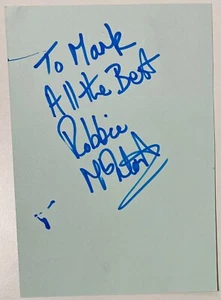 To Mark
All the Best
Robbie